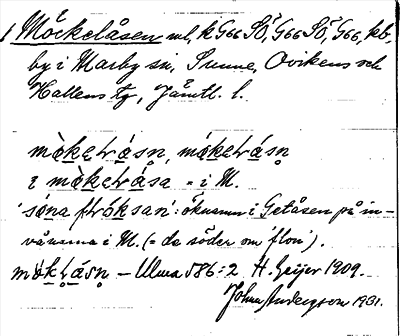 1 Möckelåsen ul, k G66 SÖ, G66 SÖ, G66, kb,
by i Marby sn, Sunne, Ovikens och
Hallens tg, Jämtl. l.
mòkelråsn, mókelråsn
i mòkelråsa = i M.
'söna flóksan': öknamn i Getåsen på in-
vånarna i M. (= de söder om 'flon').
mòkļåsn – Ulma 586:2 H. Geijer 1909.
John Andersson 1931.